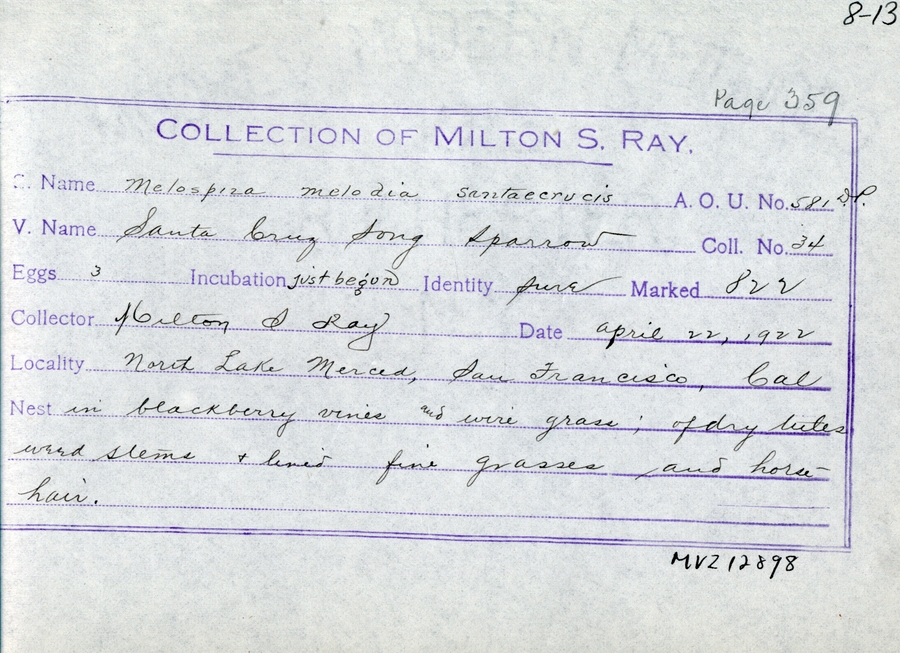 8-13
Page 359
COLLECTION OF MILTON S. RAY.
S. Name Melospiza melodia santaecrucis A. O. U. No. 581 D.P.
V. Name Santa Cruz Song Sparrow Coll. No. 34
Eggs 3 Incubation just begun Identity sure Marked 822
Collector Milton S Ray Date april 22, 1922
Locality North Lake Merced, San Francisco, Cal
Nest in blackberry vines and wire grass; of dry tules
weed stems + lined fine grasses and horse-
hair.
MVZ 12898